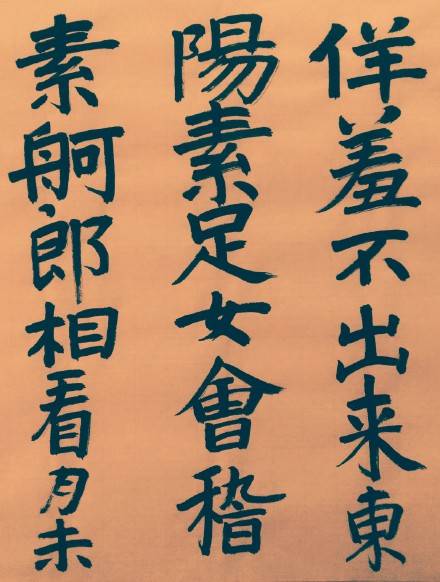 佯羞不出来東
陽素足女會稽
素舸郎相看月未